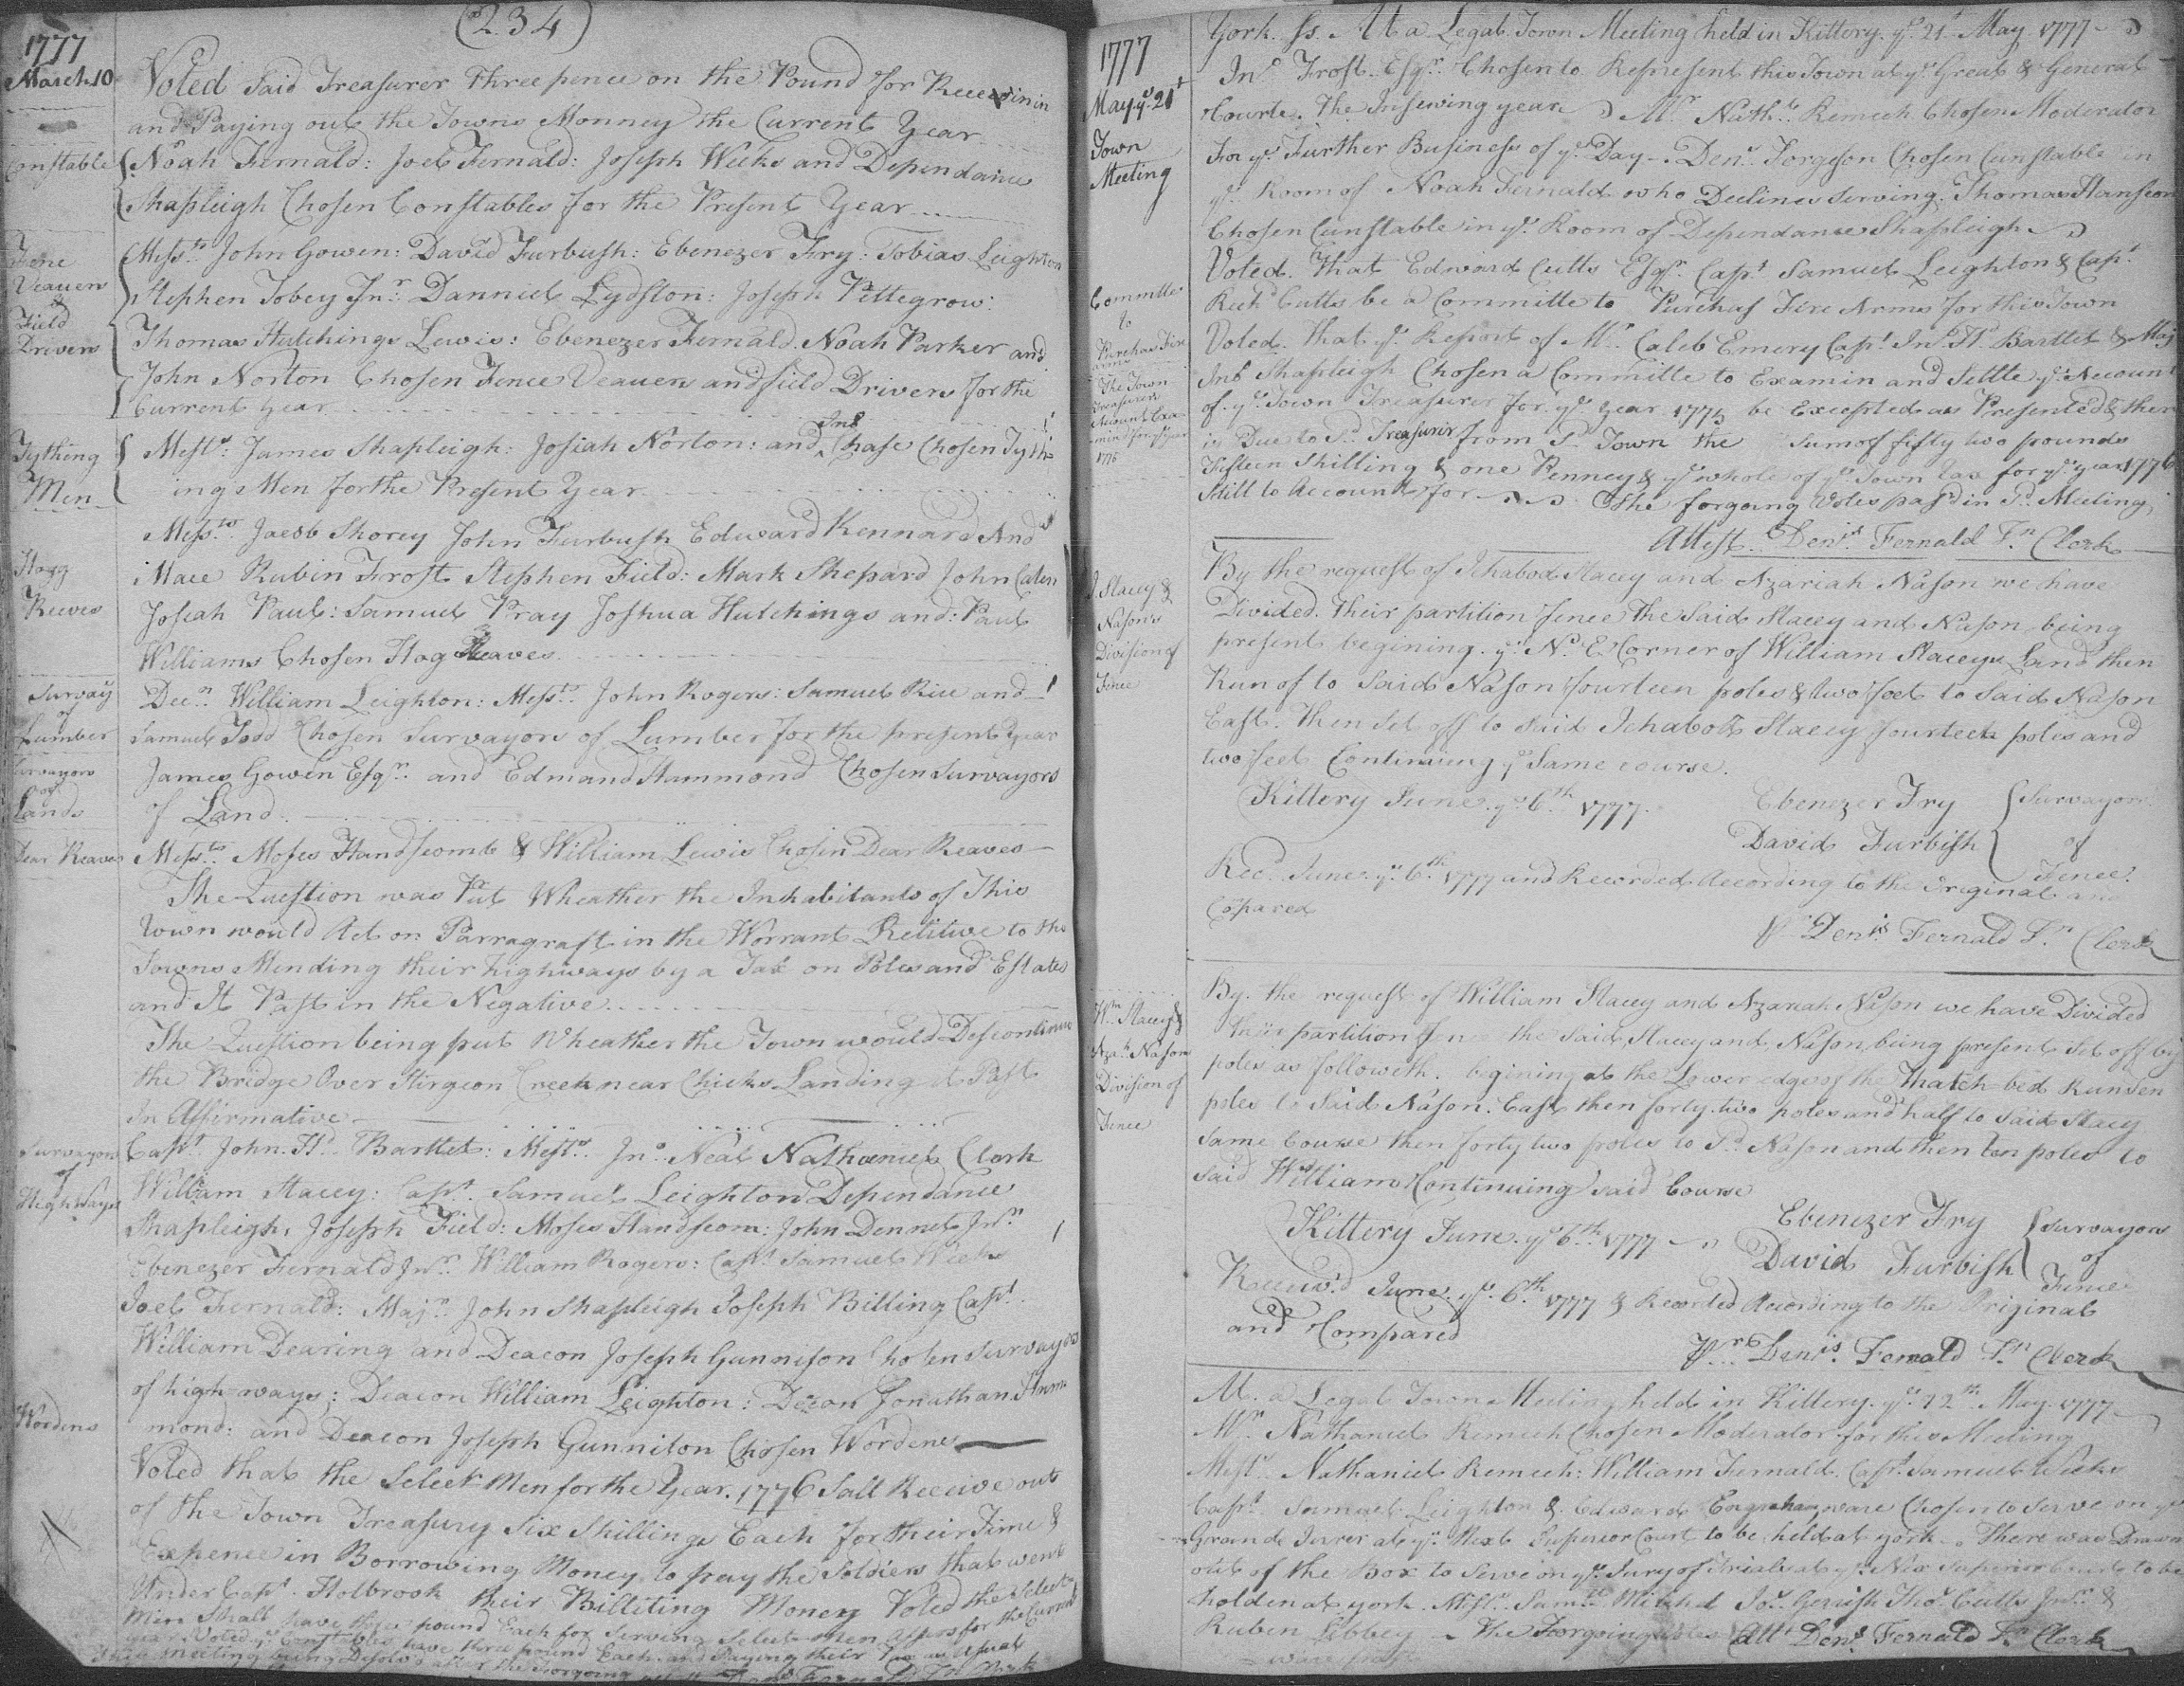 (234)
1777
March 10
Voted Said Treasurer Three pence on the Pound for Receivin
and Paying out the Towns Monney the Current Year
Constable
Noah Fernald: Joel Fernald: Joseph Weeks and Dependance
Shapleigh Chosen Constables for the Present Year
Fene
Veauers
&
Field
Drivers
Messrs John Gowen: David Furbush: Ebenezer Fry: Tobias Leighton
Stephen Tobey Jnr: Danniel Lydston: Joseph Pettegrow:
Thomas Hutchings Lewis: Ebenezer Fernald. Noah Parker and
John Norton Chosen Fence Veauers and field Drivers for the
Current year
Tything
Men
Messrs: James Shapleigh: Josiah Norton: and Jno Chase Chosen Tyth=
ing Men for the Present Year
Hogg
Reeves
Messrs Jacob Shorey John Furbush Edward Kennard And
Mace Rubin Frost Stephen Field: Mark Shepard John
Josiah Paul: Samuel Pray Joshua Hutchings and: Paul
Williams Chosen Hog Reaves
Survay
of
Lumber
Deen William Leighton: Messrs John Rogers: Samuel Rice and
Samuel Todd Chosen Survayors of Lumber for the present year
Survayors
of
Lands
James Gowen Esqr. and Edmand Hammond Chosen Survayors
of Land.
Dear Reaves
Messrs Moses Handscomb & William Lewis Chosin Dear Reaves
The Question was Put Wheather the Inhabitants of This
Town would Act on Parragraft in the Worrant Relitive to the
Towns Mending their highways by a Tax on Poles and Estates
and It Past in the Negative
The Question being put Wheather the Town would Descontinue
the Bridge Over Sturgeon Creek near Chicks Landing it Past
In Affirmative
Survayors
of
High Ways
Capt John Hd Bartlet: Messrs Jno Neal Nathaniel Clark
William Stacey: Capt. Samuel Leighton Dependance
Shapleigh, Joseph Field: Moses Handscom: John Dennet Jnr
Ebenezer Fernald Jnr William Rogers: Capt Samuel Weeks
Joel Fernald: Majr John Shapleigh Joseph Billing Capt
William Dearing and Deacon Joseph Gunnison Chosen Survayors
of high-ways: Deacon William Leighton: Deacon Jonathan Hamm
Wordens
mond: and Deacon Joseph Gunnison Chosen Wordens
Voted that the Select Men for the Year. 1776 Sall Receive out
of the Town Treasury Six Shillings Each for their Time &
Expence in Borrowing Money to pay the Soldiers that went
Under Capt. Holbrook their Billiting Money Voted the Select
Men Shall have three pound Each for Serving Select Men for the Current
year Voted ye Constables have three pound Each and Paying their Tax as Usual
This meeting being Desolvd after the Forgoing
1777
May ye 21t
Town
Meeting
York Ss. At a Legal Town Meeting held in Kittery ye 21t May 1777
Jno Frost Esqr. Chosen to Represent this Town at ye Great & General
Courte. The Insewing year Mr Nathl. Remich Chosen Moderator
For ye Further Business of ye Day. Dens Forgeson Chosen Cunstable in
ye Room of Noah Fernald who Declines serving. Thomas Hanscom
Chosen Cunstable in ye Room of Dependance Shapleigh
Committe
to
Purchas Fire
arms
Voted. That Edward Cutts Esqr. Capt Samuel Leighton & Capt
Richd Cutts be a Committe to Purchas Fire Arms for this Town
The Town
Treasurers
Account Exa-
mind for ye year
1775
Voted. That ye Report of Mr Caleb Emery Capt Jno Hd Bartlet & Maj
Jno Shapleigh Chosen a Committe to Examin and Settle ye Account
of ye Town Treasurer for ye year 1775 be Excepted as Presented & ther
is Due to Sd Treasurer from Sd Town the Sum of fifty two pounds
Fifteen Shilling & one Penney & ye whole of ye Town tax for ye year 1776
Still to Account for The forgoing Votes past in Sd Meeting
Attest Denis Fernald Tn Clerk
I. Stacey &
Nason's
Division of
Fence
By the request of Ichabod Stacey and Azariah Nason we have
Divided their partition fence the Said Stacey and Nason being
present begining ye No E Corner of William Staceys Land then
Run of to Said Nason fourteen poles & two foet to Said Nason
East. Then set off to Said Ichabod Stacey fourteen poles and
two feet Continuing ye Same course.
Kittery June ye 6th 1777.
Ebenezer Fry
David Furbish
Survayors
of
Fence.
Recd June ye 6th 1777 and Recorded According to the Original and
Copared
Pr Denis Fernald Tn Clerk
Wm Stacey &
Azah Nason
Division of
Fence
By. the request of William Stacey and Azariah Nason we have Divided
their partition the Said, Stacey and Nason being present Set off by
poles as followeth. begining at the Lower edge of the Thatch-bed Run ten
poles to Said Nason. East then forty two poles and half to Said Stacy
Same Course then forty two poles to Sd Nason and then ten poles to
Said William Continuing said Course
Kittery June ye 6th 1777
Ebenezer Fry
David Furbish
Survayors
of
Fence
Receiv'd June ye 6th 1777 & Recorded According to the Original
and Compared
Pr Denis Fernald Tn Clerk
At. a Legal Town Meeting held in Kittery ye 12th May 1777
Mr Nathaniel Remich Chosen Moderator for this Meeting
Messrs Nathaniel Remich: William Fernald. Capt Samuel Weeks
Capt Samuel Leighton & Edward ware Chosen to Serve on ye
Grand Jurer at ye Next Superior Court to be held at york There was Drawn
out of the Box to Serve on ye Jury of Trials at ye Nix Superior Court to be
holden at york. Messrs Saml Mitchel Jos. Gerrish Thos Cutts Jnr &
Ruben Libbey The Forgoing votes Att Denis Fernald Tn Clerk
ware past